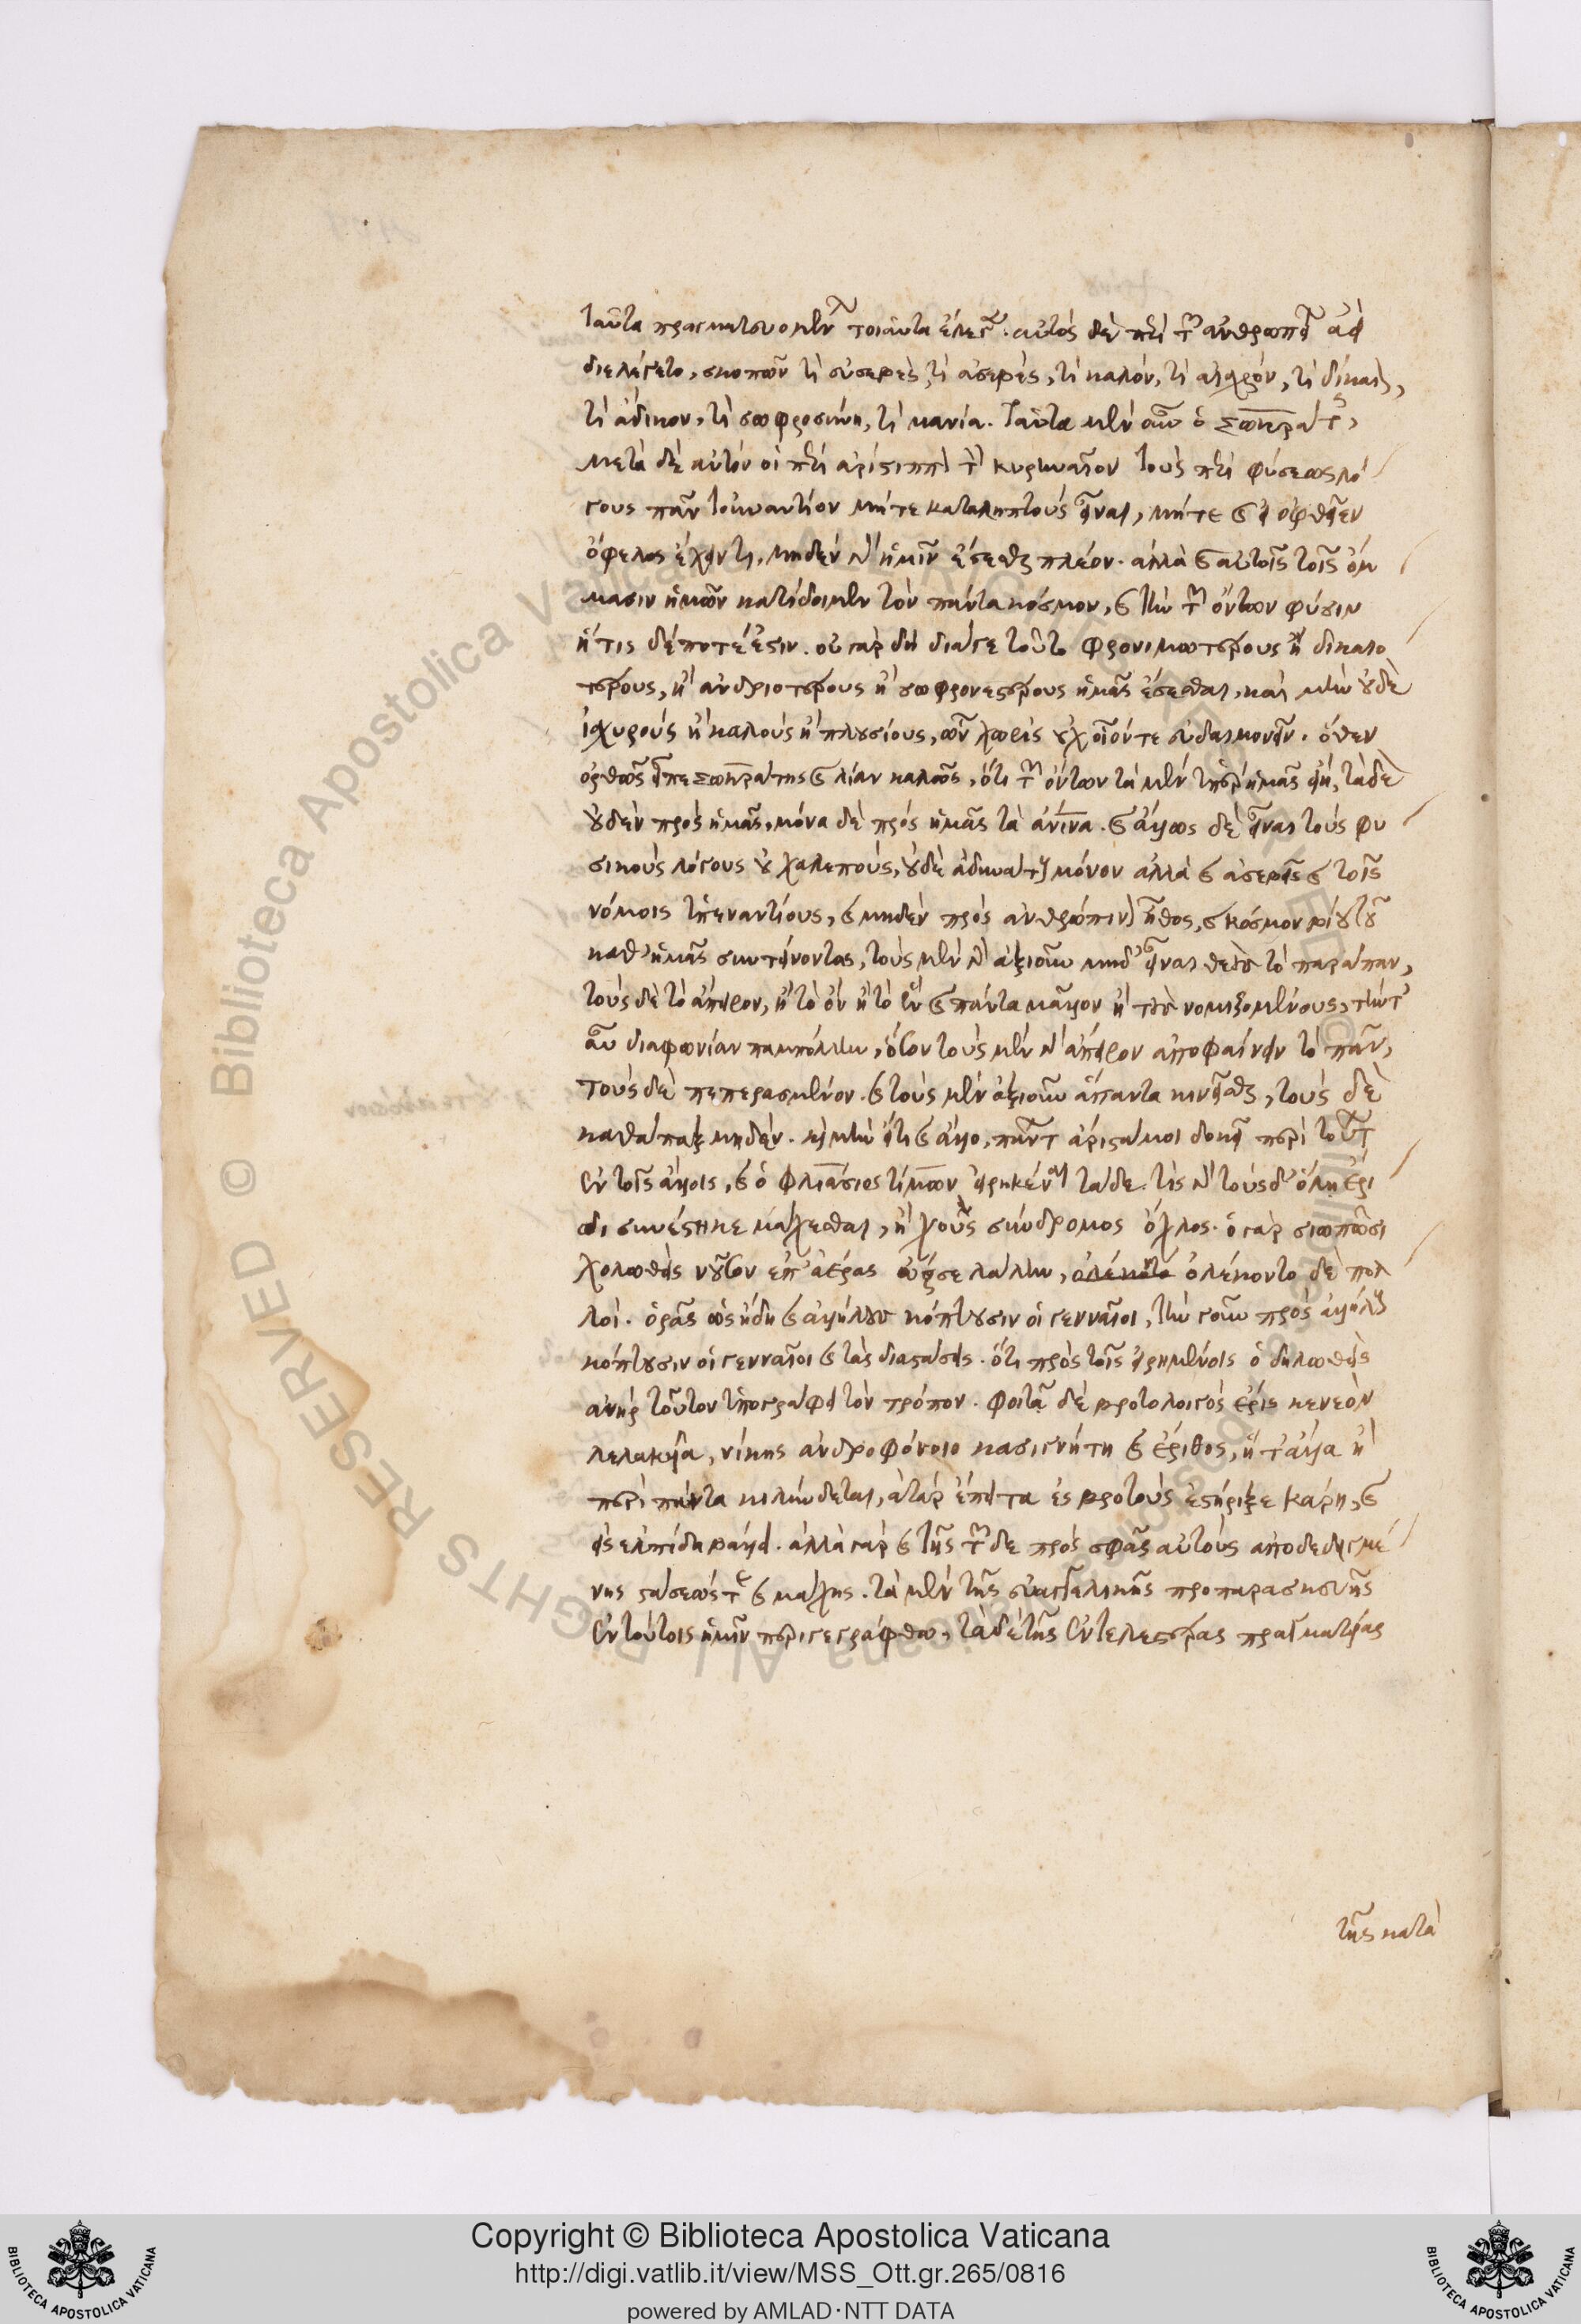 ταῦτα πραγματευομένων τοιαῦτα ἔλεγεν. αὐτὸς δὲ περὶ τῶν ἀνθρωπείων ἀεὶ
διελέγετο, σκοπῶν τί εὐσεβὲς, τί ἀσεβὲς, τί καλὸν, τί αἰσχρὸν, τί δίκαιον,
τί ἄδικον, τί σωφροσύνη, τί μανία. ταῦτα μὲν οὖν ὁ Σωκράτης,
μετὰ δὲ αὐτὸν οἱ περὶ ἀρίστιππον τὸν κυρηναῖον τοὺς περὶ φύσεως λό
γους πᾶν τοὐναντίον μήτε καταληπτοὺς εἶναι, μήτε καὶ εἰ ὀφθεῖεν
ὄφελος ἔχειν τι, μηδὲν γὰρ ἡμῖν ἔσεσθαι πλέον. ἀλλὰ καὶ αὐτοῖς τοῖς ὄμ
μασιν ἡμῶν κατίδοιμεν τὸν πάντα κόσμον, καὶ τὴν τῶν ὄντων φύσιν
ἥτις δήποτέ ἐστιν. οὐ γὰρ δὴ διά γε τοῦτο φρονιμωτέρους ἢ δικαιο
τέρους, ἢ ἀνδριοτέρους ἢ σωφρονεστέρους ἡμᾶς ἔσεσθαι, καὶ μὴν οὐδὲ
ἰσχυροὺς ἢ καλοὺς ἢ πλουσίους, ὧν χωρὶς οὐχ οἷόντε εὐδαιμονεῖν. ὅθεν
ὀρθῶς εἶπε Σωκράτης καὶ λίαν καλῶς, ὅτι τῶν ὄντων τὰ μὲν ὑπὲρ ἡμᾶς εἴη, τὰ δὲ
οὐδὲν πρὸς ἡμᾶς, μόνα δὲ πρὸς ἡμᾶς τὰ ἀνινα. καὶ ἄλλως δὲ εἶναι τοὺς φυ
σικοὺς λόγους οὐ χαλεποὺς, οὐδὲ ἀδυνάτους μόνον ἀλλὰ καὶ ἀσεβεῖς καὶ τοῖς
νόμοις ὑπεναντίους, καὶ μηδὲν πρὸς ἀνθρώπινον ἦθος, καὶ κόσμον βίου τοῦ
καθ' ἡμᾶς συντείνοντας, τοὺς μὲν γὰρ ἀξιοῦν μηδ' εἶναι θεοὺς τὸ παράπαν,
τοὺς δὲ τὸ ἄπειρον, ἢ τὸ ὂν ἢ τὸ ἓν καὶ πάντα μᾶλλον ἢ τοὺς νομιζομένους, τήν τ'
αὖ διαφωνίαν παμπόλλην, ὅσον τοὺς μὲν γὰρ ἄπειρον ἀποφαίνειν τὸ πᾶν,
τοὺς δὲ πεπερασμένον. καὶ τοὺς μὲν ἀξιοῦν ἅπαντα κινεῖσθαι, τοὺς δὲ
καθάπαξ μηδέν. καὶ μὴν ἔτι καὶ ἄλλο, πάντων ἄριστά μοι δοκεῖ περὶ τούτων
ἐν τοῖς ἄλλοις, καὶ ὁ φλιάσιος τίμων εἰρηκέναι τάδε. τίς γὰρ τούσδ' ὀλῃ ἔρι
δι συνέστηκε μάχεσθαι, ἢ χοῦς σύνδρομος ὄχλος. ὁ γὰρ σιωπῶσι
χολωθεὶς νοῦσον ἐπ' ἀέρας ὦρσε λάλην, ὀλέκοντο δὲ πολ
λοί. ὁρᾷς ὡς ἤδη καὶ ἀλλήλους κόπτουσιν οἱ γενναῖοι, τὴν γοῦν πρὸς ἀλλήλους
κόπτουσιν οἱ γενναῖοι καὶ τὰς διαστάσεις. ὅτι πρὸς τοῖς εἰρημένοις ὁ δηλωθεὶς
ἀνὴρ τοῦτον ὑπογράφει τὸν τρόπον. φοιτᾷ δὲ βροτολοιγὸς ἔρις κενεὸν
λελακυῖα, νίκης ἀνδροφόνοιο κασιγνήτη καὶ ἔριθος, ἥ τ' ἀλλα ἢ
περὶ πάντα κυλίνδεται, ἀτὰρ ἔπειτα ἐς βροτοὺς ἐστήριξε κάρη, καὶ
εἰς ἐλπίδα βάλλει. ἀλλὰ γὰρ καὶ τῆς τῶνδε πρὸς σφᾶς αὐτοὺς ἀποδεδειγμέ
νης στάσεώς τε καὶ μάχης. τὰ μὲν τῆς εὐαγγελικῆς προπαρασκευῆς
ἐν τούτοις ἡμῖν περιγεγράφθω, τὰ δὲ τῆς ἐντελεστέρας πραγματείας
τῆς κατὰ
Copyright © Biblioteca Apostolica Vaticana
http://digi.vatlib.it/view/MSS_Ott.gr.265/0816
powered by AMLAD·NTT DATA